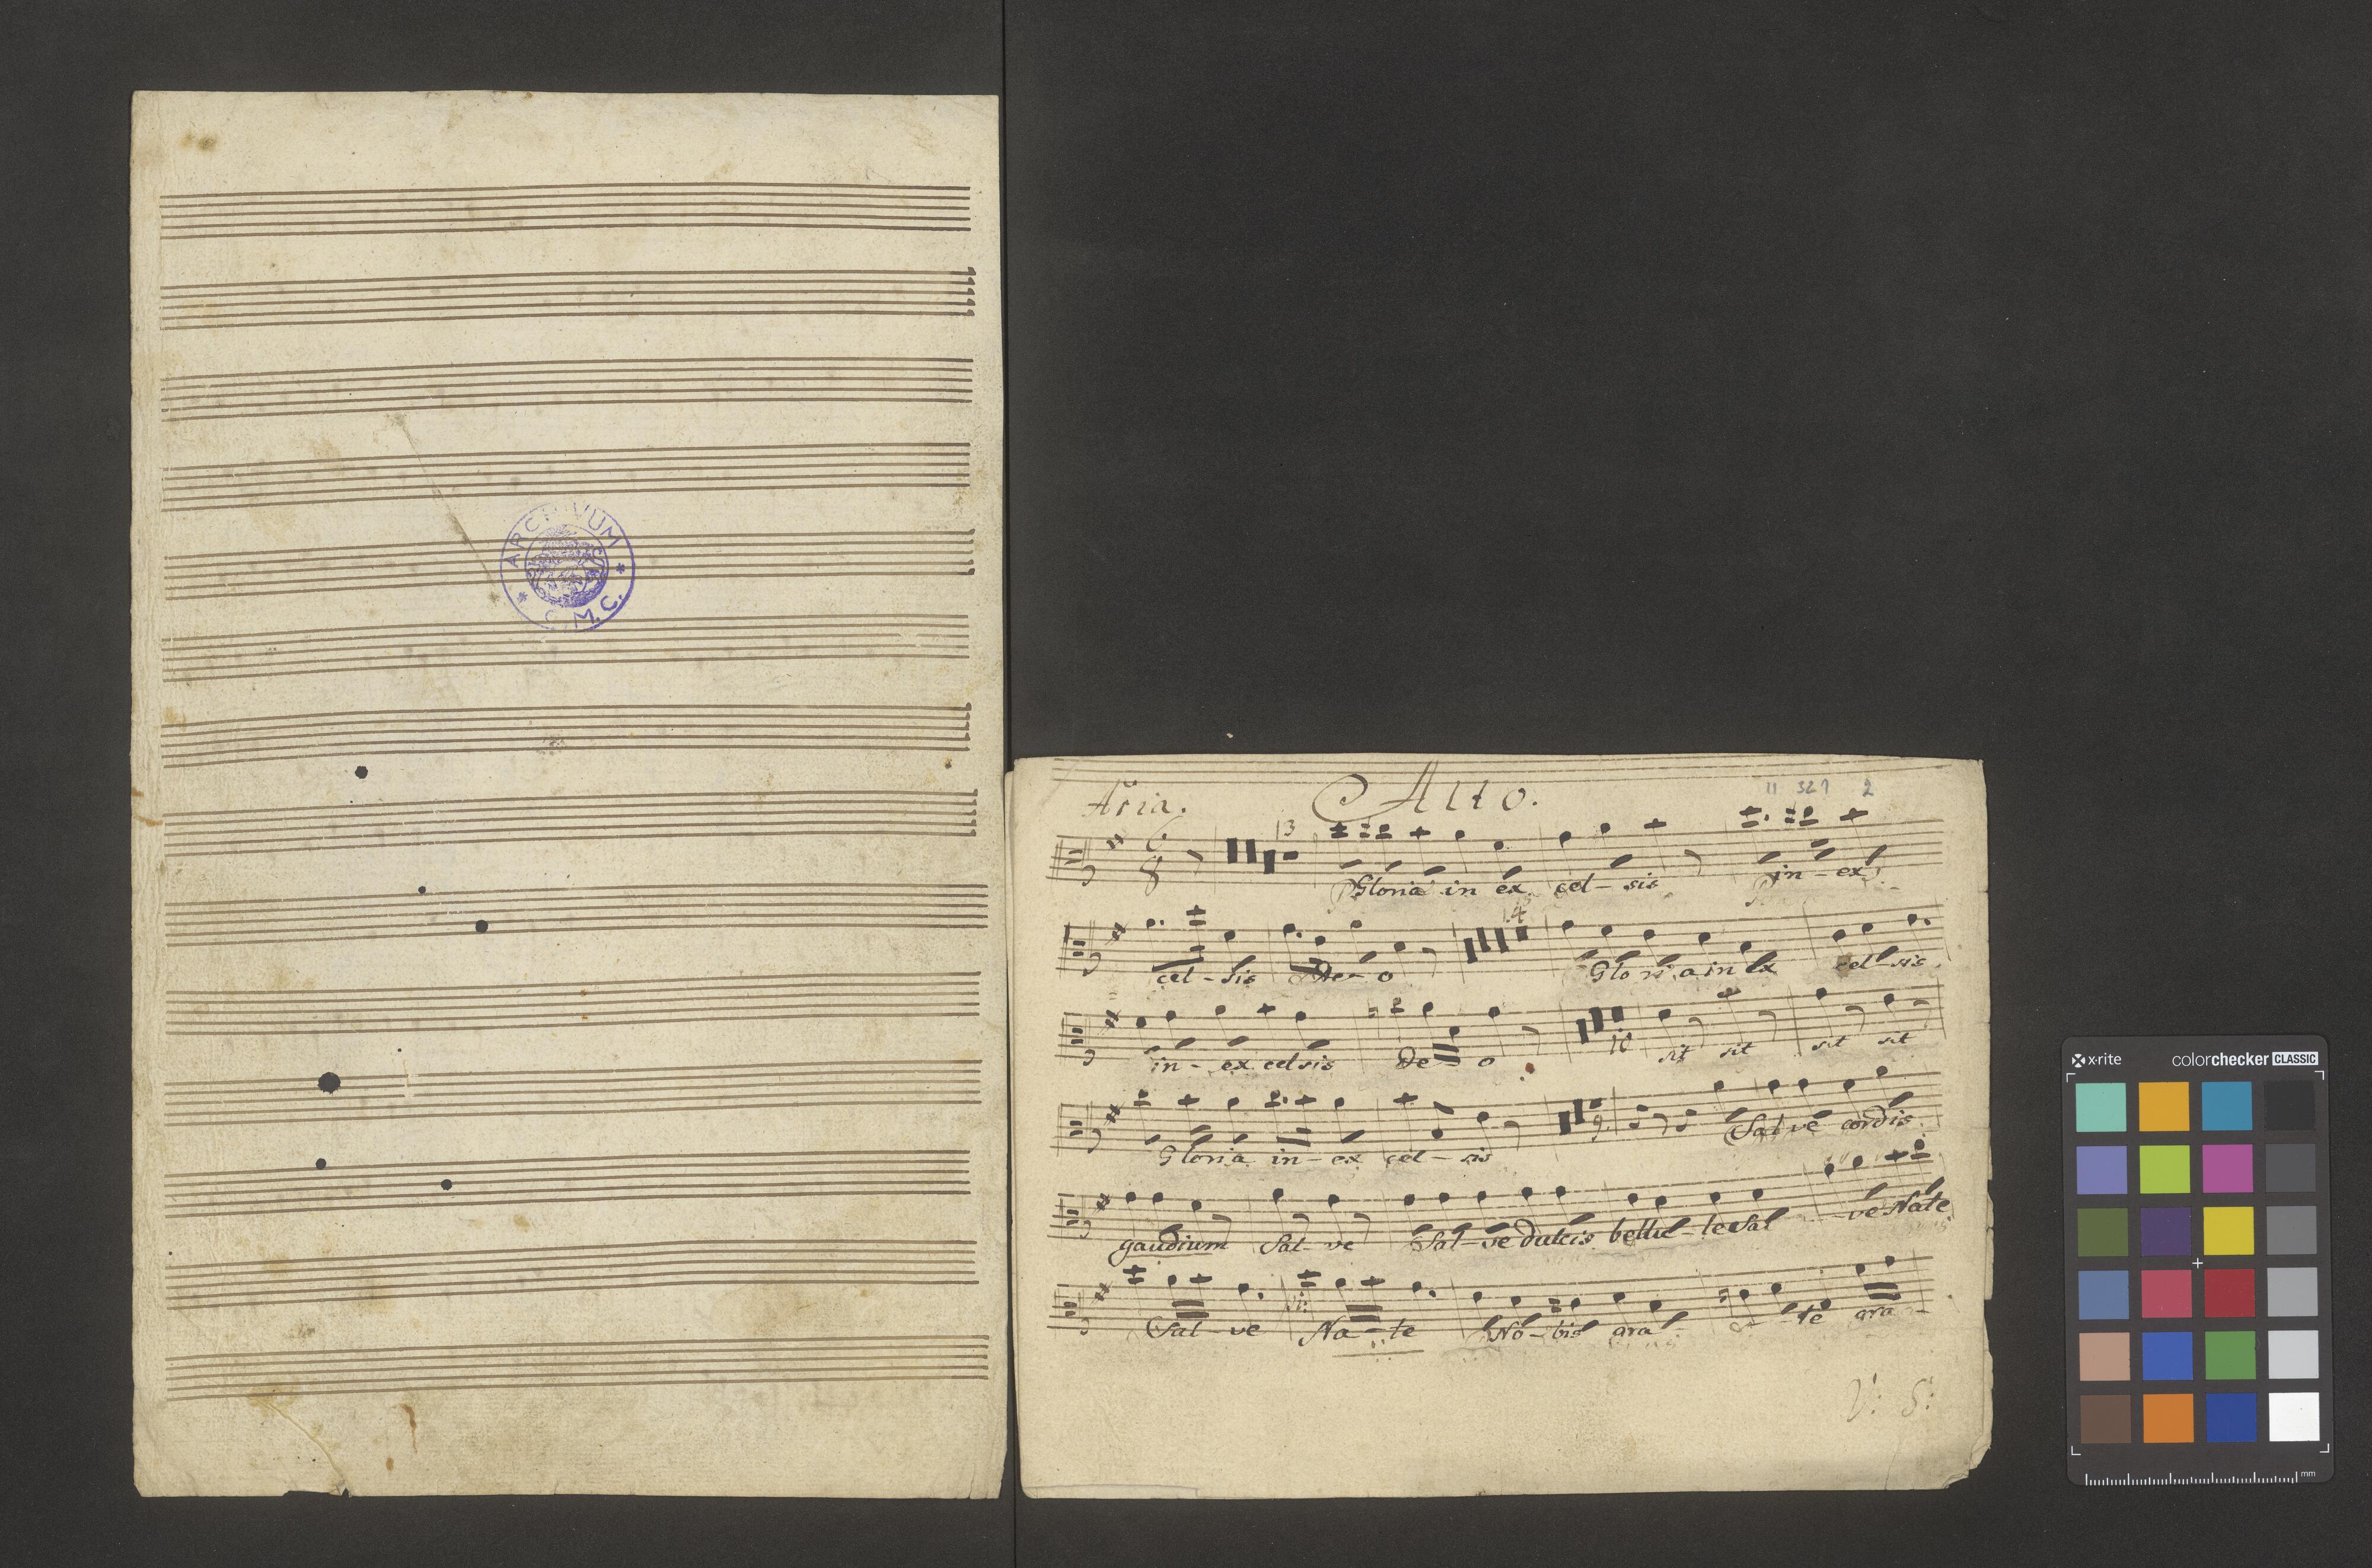 ARCHIVUM
C.M.C.
Aria. Alto.
11 321 2
6
8
13
Gloria in ex cel - sis in - ex
14
cel - sis De - o Glo ri a in ex cel - sis
in - ex celsis De - o 10 sit sit sit sit
Gloria in - ex cel - sis 9. Salve cordis
gaudium Sal - ve Sal - ve dulcis bellu - le Sal - ve Nate
Sal - ve Na - te No - bis gra - te gra -
V: S:
x-rite colorchecker CLASSIC
mm